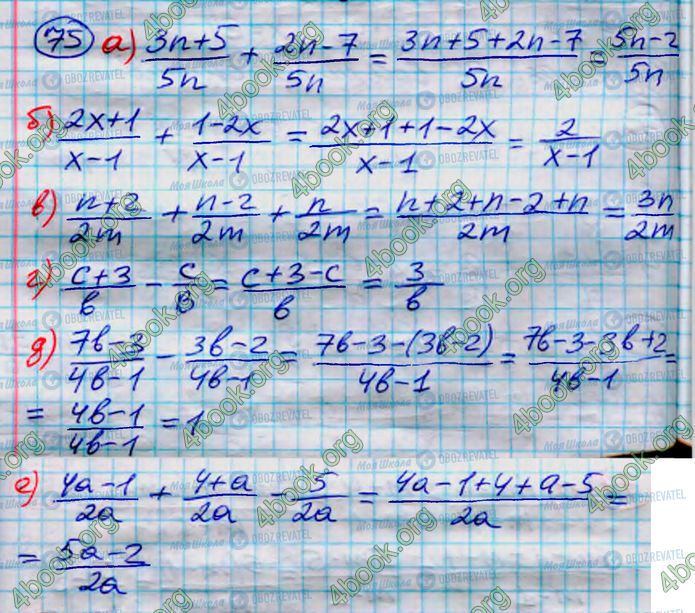 75 а) (3n+5)/5n + (2n-7)/5n = (3n+5+2n-7)/5n = (5n-2)/5n
б) (2x+1)/(x-1) + (1-2x)/(x-1) = (2x+1+1-2x)/(x-1) = 2/(x-1)
в) (n+2)/2m + (n-2)/2m + n/2m = (n+2+n-2+n)/2m = 3n/2m
г) (c+3)/b - c/b = (c+3-c)/b = 3/b
д) (7b-3)/(4b-1) - (3b-2)/(4b-1) = (7b-3-(3b-2))/(4b-1) = (7b-3-3b+2)/(4b-1) =
= (4b-1)/(4b-1) = 1
е) (4a-1)/2a + (4+a)/2a - 5/2a = (4a-1+4+a-5)/2a =
= (5a-2)/2a
4book.org
Моя Школа OBOZREVATEL